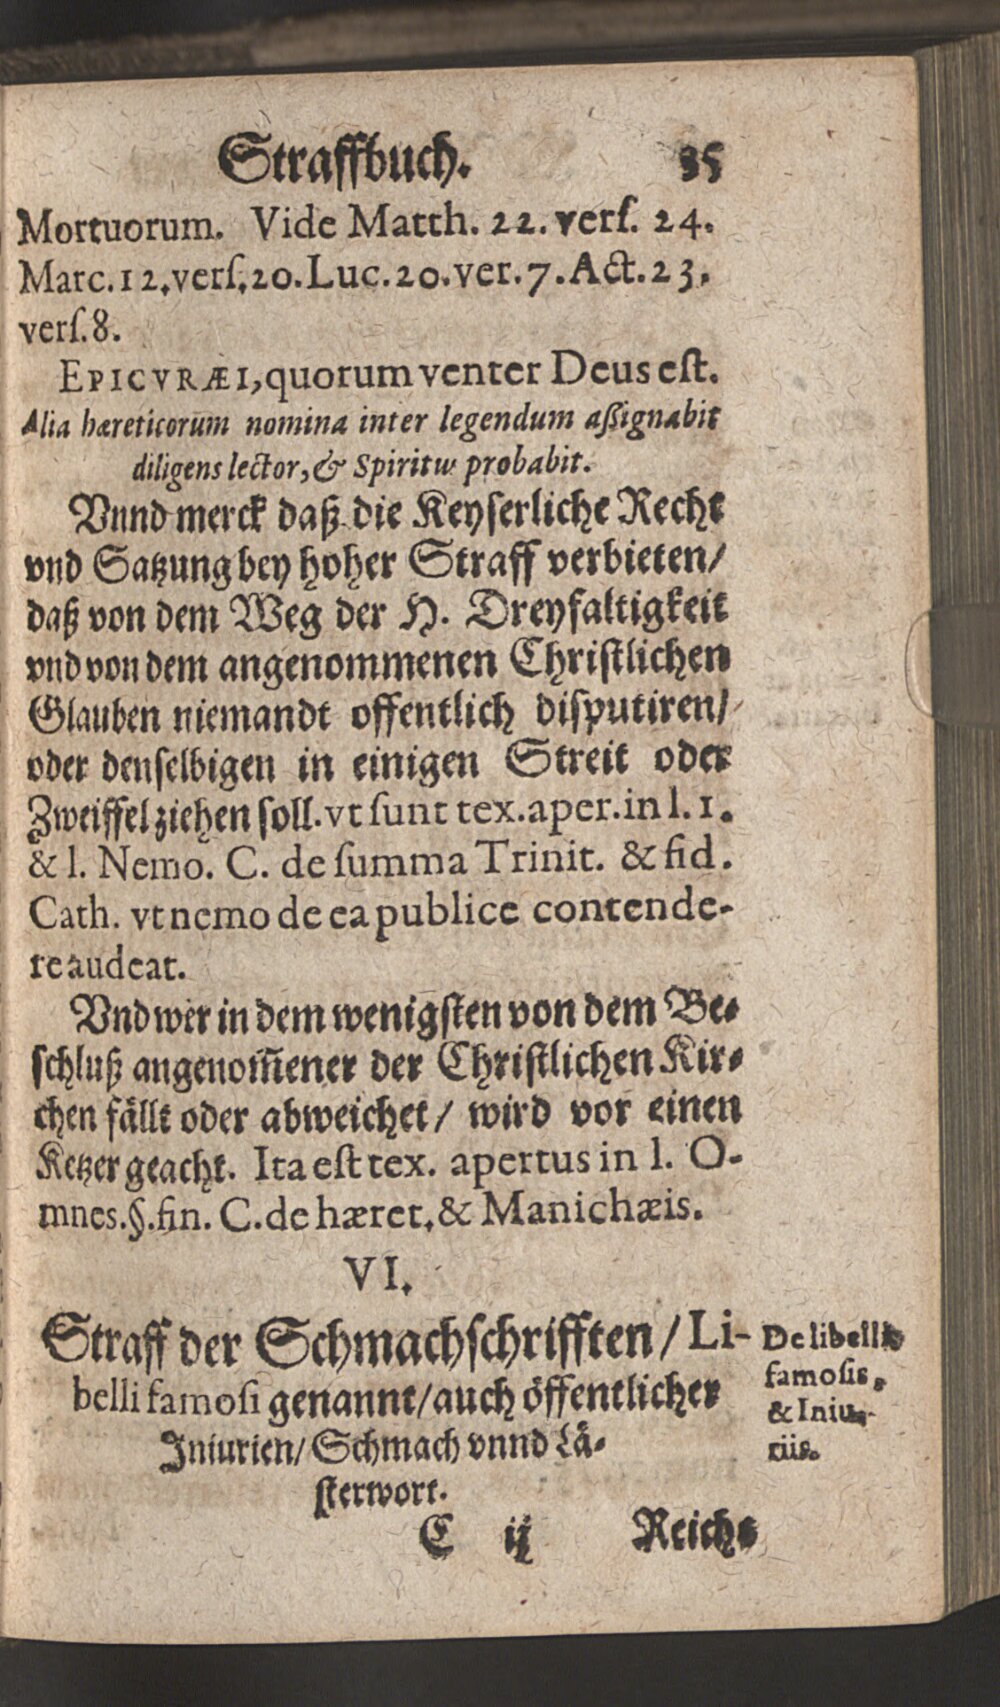 Straffbuch. 35
Mortuorum. Vide Matth. 22. verſ. 24.
Marc. 12. verſ. 20. Luc. 20. ver. 7. Act. 23.
verſ. 8.
EPICVRÆI, quorum venter Deus eſt.
Alia hæreticorum nomina inter legendum aßignabit
diligens lector, & Spiritu probabit.
Vnnd merck daß die Keyſerliche Recht
vnd Satzung bey hoher Straff verbieten/
daß von dem Weg der H. Dreyfaltigkeit
vnd von dem angenommenen Chriſtlichen
Glauben niemandt offentlich diſputiren/
oder denſelbigen in einigen Streit oder
Zweiffel ziehen ſoll. vt ſunt tex. aper. in l. 1.
& l. Nemo. C. de ſumma Trinit. & fid.
Cath. vt nemo de ea publice contende-
re audeat.
Vnd wer in dem wenigſten von dem Be-
ſchluß angenom̄ener der Chriſtlichen Kir-
chen fällt oder abweichet/ wird vor einen
Ketzer geacht. Ita eſt tex. apertus in l. O-
mnes. §. fin. C. de hæret. & Manichæis.
VI.
Straff der Schmachſchrifften/ Li-
belli famoſi genannt/ auch öffentlicher
Iniurien/ Schmach vnnd Lä-
ſterwort.
De libellis
famoſis,
& Iniu-
riis.
C ij Reichs